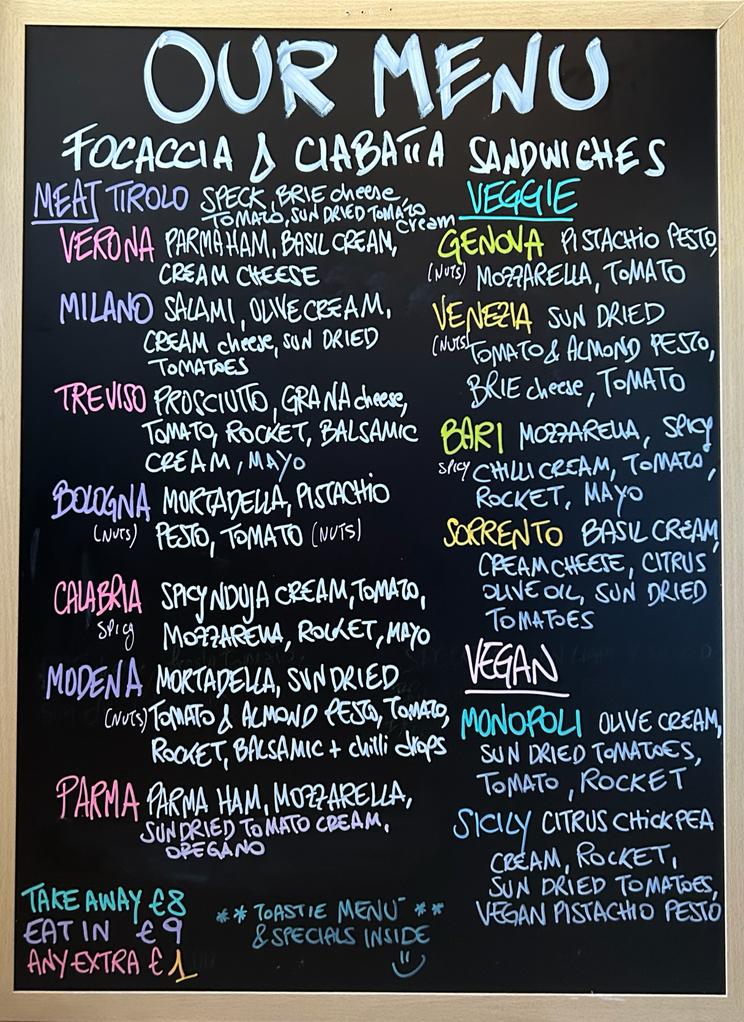 OUR MENU
FOCACCIA & CIABATTA SANDWICHES
MEAT
TIROLO SPECK, BRIE cheese,
TOMATO, SUN DRIED TOMATO
cream
VERONA PARMA HAM, BASIL CREAM,
CREAM CHEESE
MILANO SALAMI, OLIVE CREAM,
CREAM cheese, SUN DRIED
TOMATOES
TREVISO PROSCIUTTO, GRANA cheese,
TOMATO, ROCKET, BALSAMIC
CREAM, MAYO
BOLOGNA MORTADELLA, PISTACHIO
(NUTS) PESTO, TOMATO (NUTS)
CALABRIA SPICY NDUJA CREAM, TOMATO,
SPICY MOZZARELLA, ROCKET, MAYO
MODENA MORTADELLA, SUN DRIED
(NUTS) TOMATO & ALMOND PESTO, TOMATO,
ROCKET, BALSAMIC + chilli drops
PARMA PARMA HAM, MOZZARELLA,
SUNDRIED TOMATO CREAM,
OREGANO
VEGGIE
GENOVA PISTACHIO PESTO,
(NUTS) MOZZARELLA, TOMATO
VENEZIA SUN DRIED
(NUTS) TOMATO & ALMOND PESTO,
BRIE cheese, TOMATO
BARI MOZZARELLA, SPICY
SPICY CHILLI CREAM, TOMATO,
ROCKET, MAYO
SORRENTO BASIL CREAM,
CREAM CHEESE, CITRUS
OLIVE OIL, SUN DRIED
TOMATOES
VEGAN
MONOPOLI OLIVE CREAM,
SUN DRIED TOMATOES,
TOMATO, ROCKET
SICILY CITRUS CHICKPEA
CREAM, ROCKET,
SUN DRIED TOMATOES,
VEGAN PISTACHIO PESTO
TAKE AWAY £8
EAT IN £9
ANY EXTRA £1
** TOASTIE MENU **
& SPECIALS INSIDE